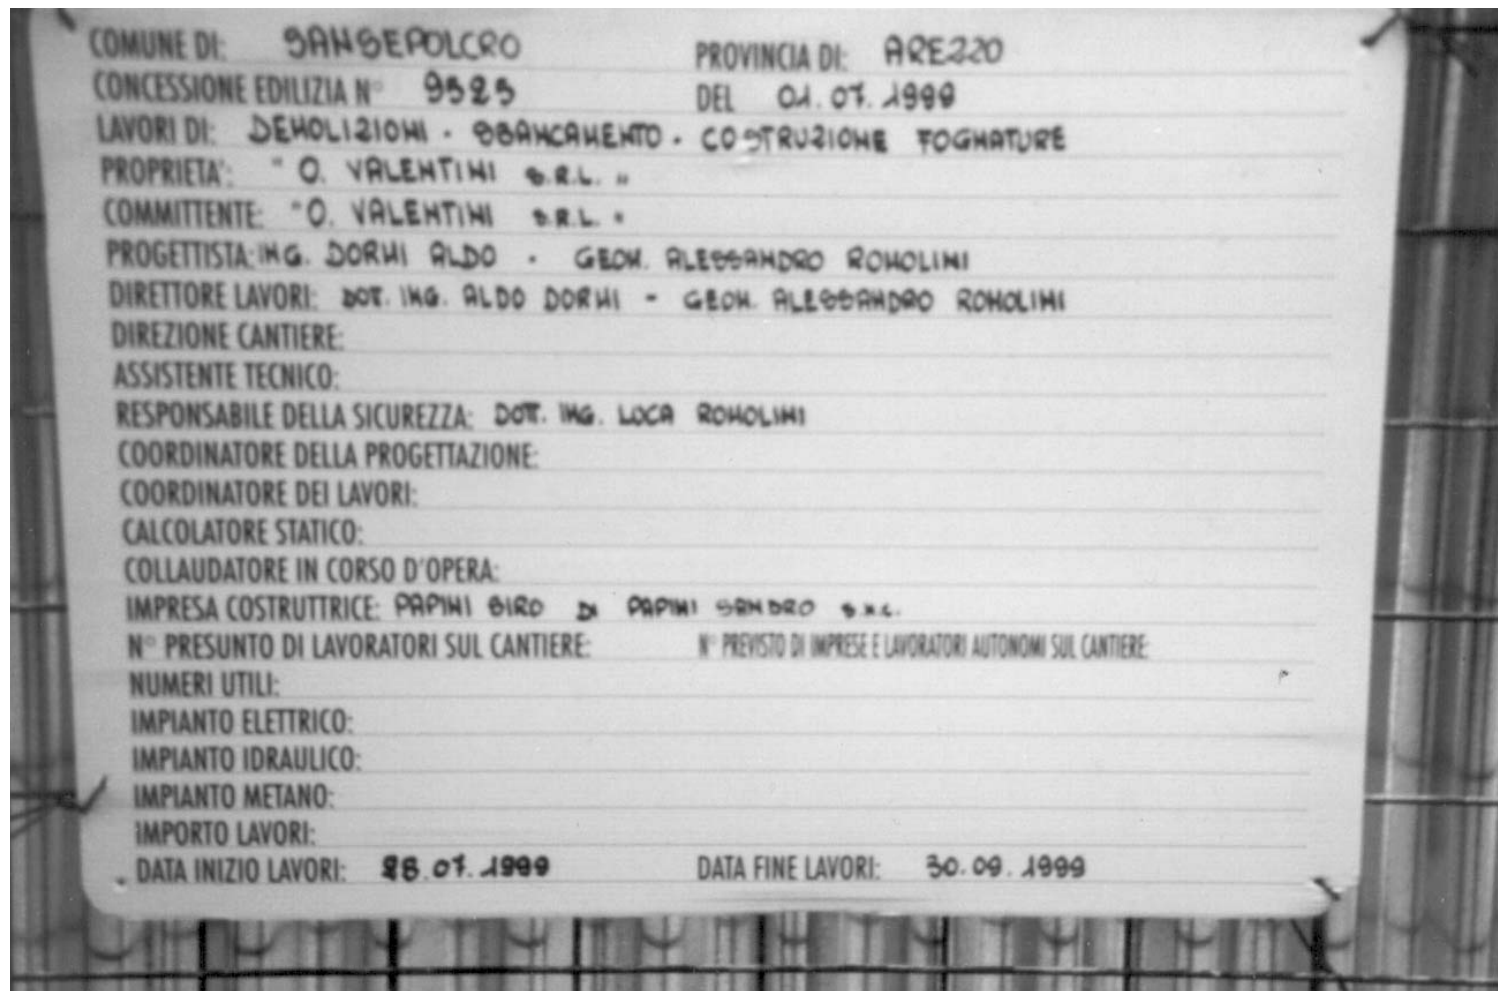 COMUNE DI: SANSEPOLCRO PROVINCIA DI: AREZZO
CONCESSIONE EDILIZIA N° 9525 DEL 01.07.1999
LAVORI DI: DEMOLIZIONI · SBANCAMENTO · COSTRUZIONE FOGNATURE
PROPRIETA': "O. VALENTINI S.R.L."
COMMITTENTE: "O. VALENTINI S.R.L."
PROGETTISTA: ING. DORNI ALDO · GEOM. ALESSANDRO ROMOLINI
DIRETTORE LAVORI: DOT. ING. ALDO DORNI - GEOM. ALESSANDRO ROMOLINI
DIREZIONE CANTIERE:
ASSISTENTE TECNICO:
RESPONSABILE DELLA SICUREZZA: DOTT. ING. LUCA ROMOLINI
COORDINATORE DELLA PROGETTAZIONE:
COORDINATORE DEI LAVORI:
CALCOLATORE STATICO:
COLLAUDATORE IN CORSO D'OPERA:
IMPRESA COSTRUTTRICE: PAPINI SIRO DI PAPINI SANDRO S.N.C.
N° PRESUNTO DI LAVORATORI SUL CANTIERE: N° PREVISTO DI IMPRESE E LAVORATORI AUTONOMI SUL CANTIERE:
NUMERI UTILI:
IMPIANTO ELETTRICO:
IMPIANTO IDRAULICO:
IMPIANTO METANO:
IMPORTO LAVORI:
DATA INIZIO LAVORI: 28.07.1999 DATA FINE LAVORI: 30.09.1999